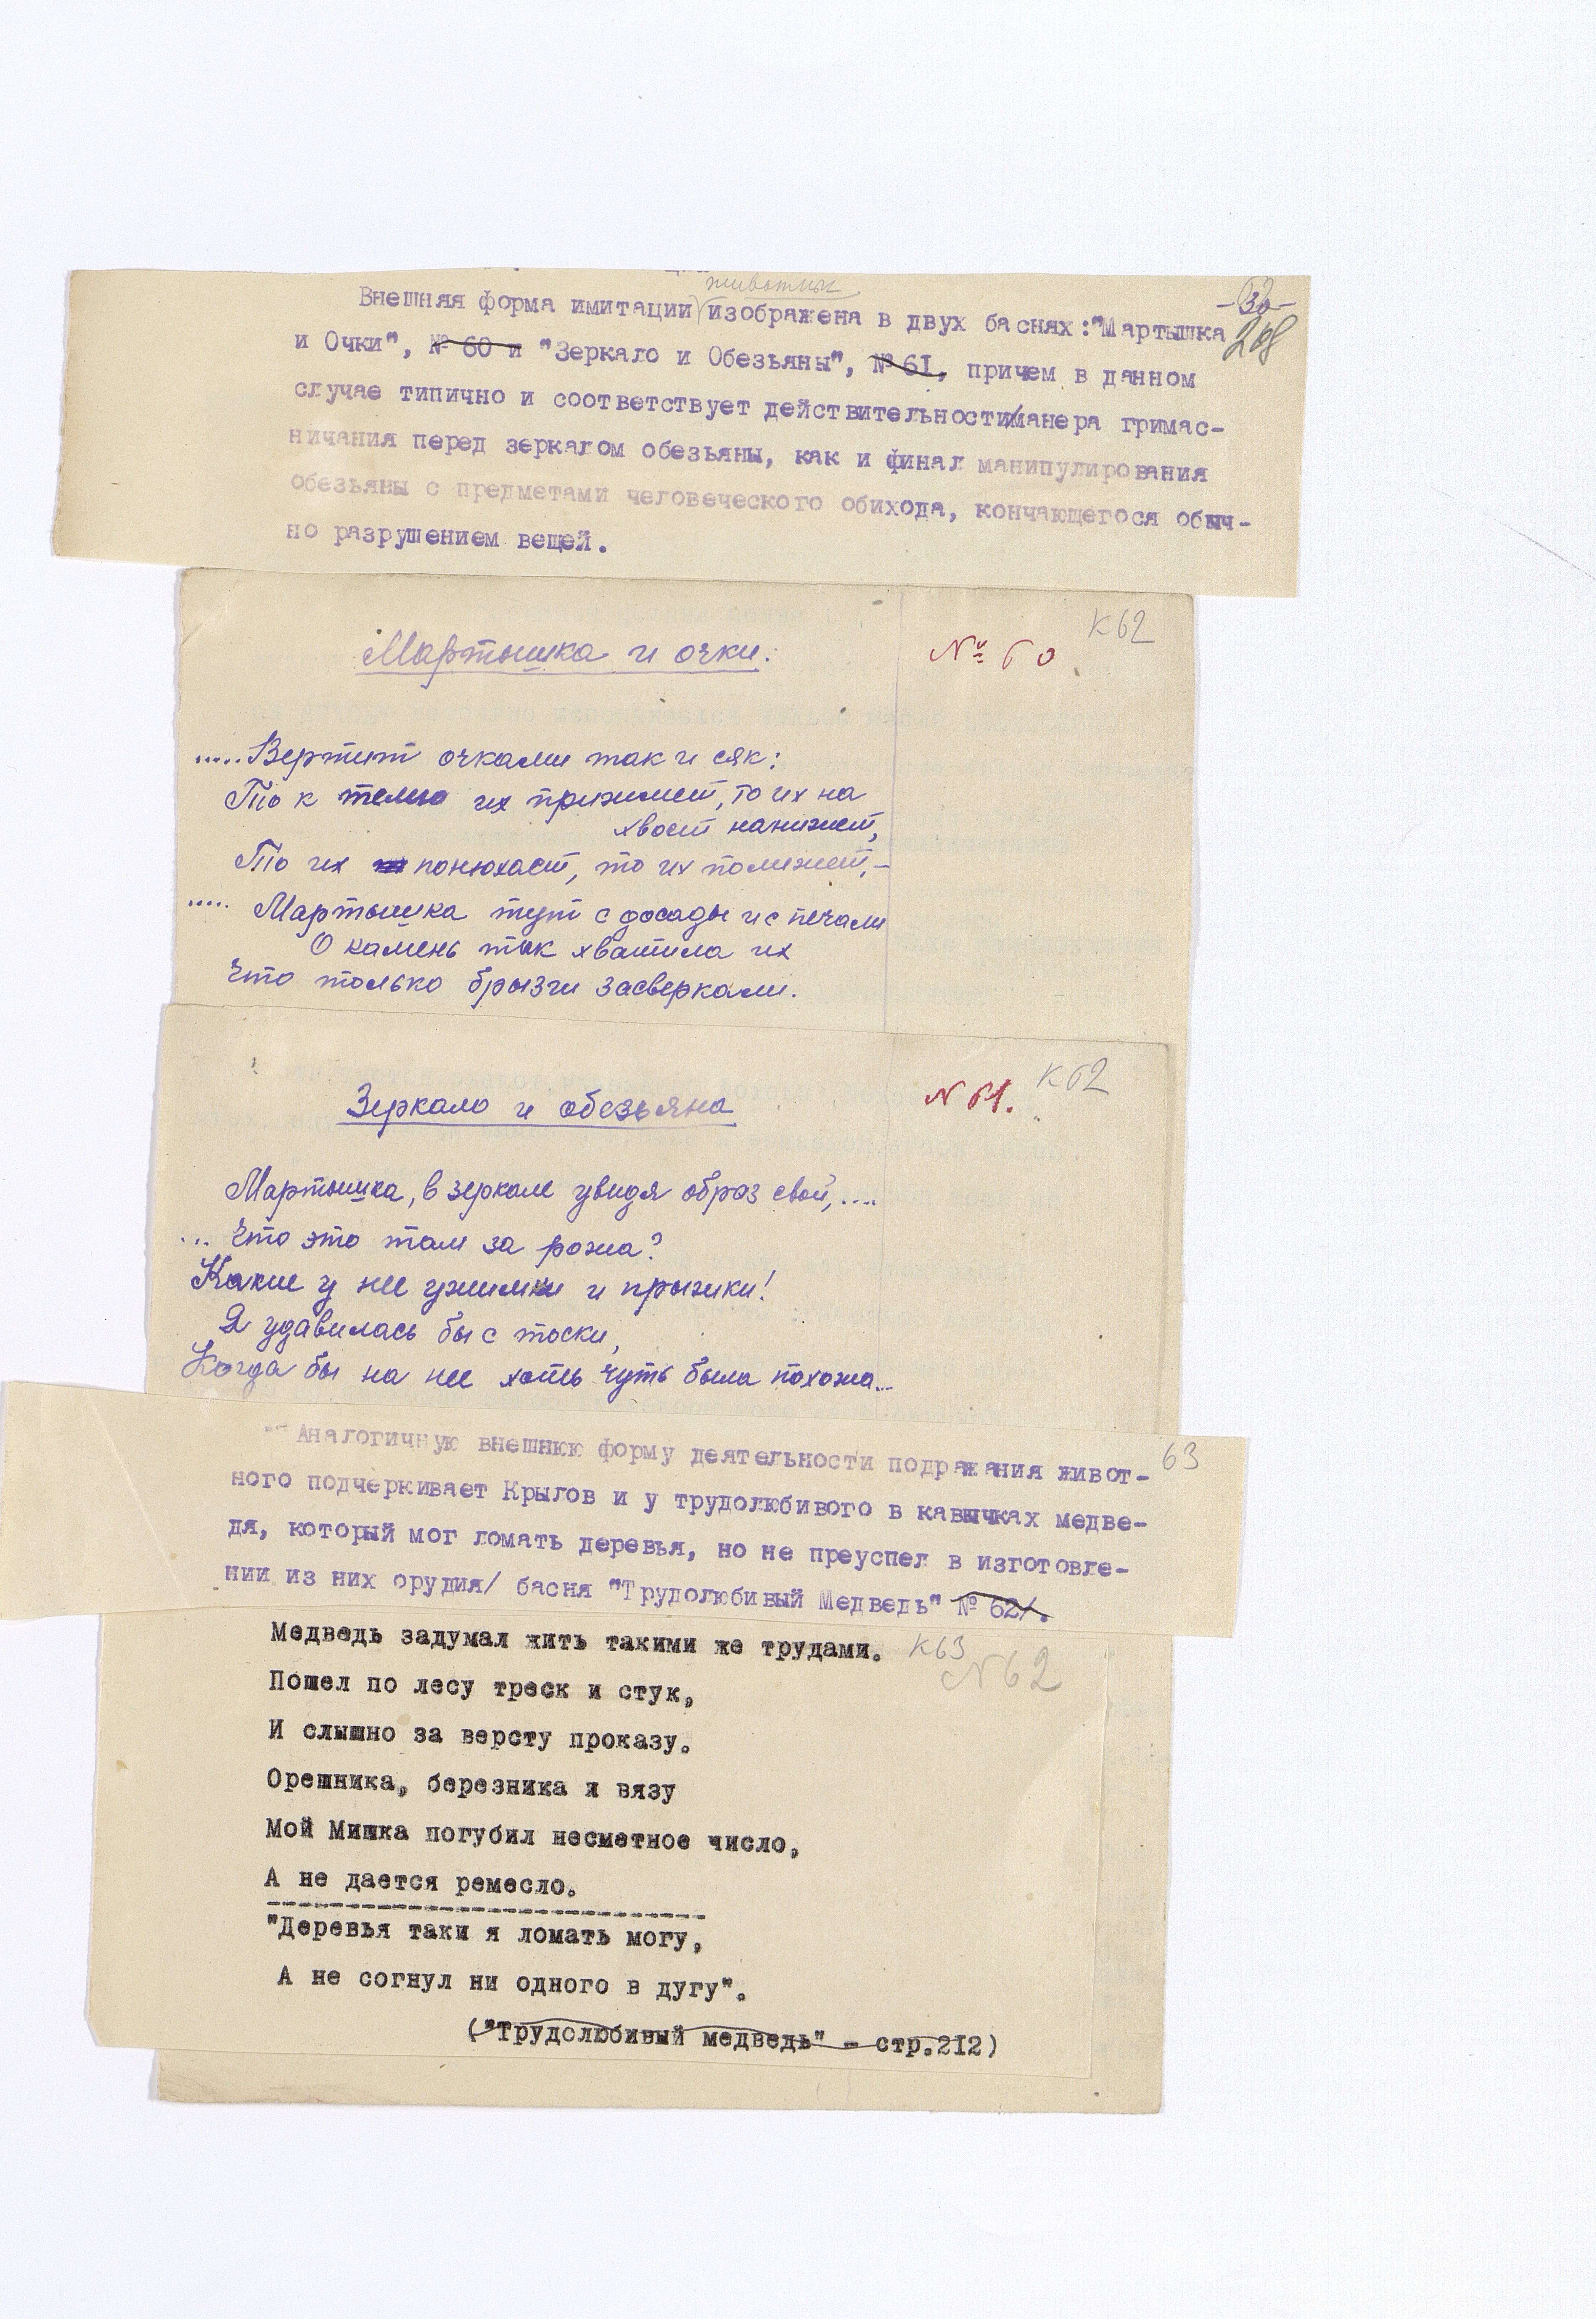 животных
-32-
Внешняя форма имитации изображена в двух баснях:"Мартышка
208
и Очки", № 60 и "Зеркало и Обезьяны", № 61, причем в данном
случае типично и соответствует действительности манера гримас-
ничания перед зеркалом обезьяны, как и финал манипулирования
обезьяны с предметами человеческого обихода, кончающегося обыч-
но разрушением вещей.
К62
Мартышка и очки.
№ 60
.....Вертит очками так и сяк:
То к темю их прижмет, то их на
хвост нанижет,
То их понюхает, то их полижет,-
..... Мартышка тут с досады и с печали
О камень так хватила их
Что только брызги засверкали.
К62
Зеркало и обезьяна
N 61.
Мартышка, в зеркале увидя образ свой,....
... Что это там за рожа?
Какие у нее ужимки и прыжки!
Я удавилась бы с тоски,
Когда бы на нее хоть чуть была похожа...
Аналогичную внешнюю форму деятельности подражания живот-
63
ного подчеркивает Крылов и у трудолюбивого в кавычках медве-
дя, который мог ломать деревья, но не преуспел в изготовле-
нии из них орудия/ басня "Трудолюбивый Медведь" № 62/.
Медведь задумал жить такими же трудами.
К63
N62
Пошел по лесу треск и стук,
И слышно за версту проказу.
Орешника, березника и вязу
Мой Мишка погубил несметное число,
А не дается ремесло.
"Деревья таки я ломать могу,
А не согнул ни одного в дугу".
("Трудолюбивый медведь" - стр.212)